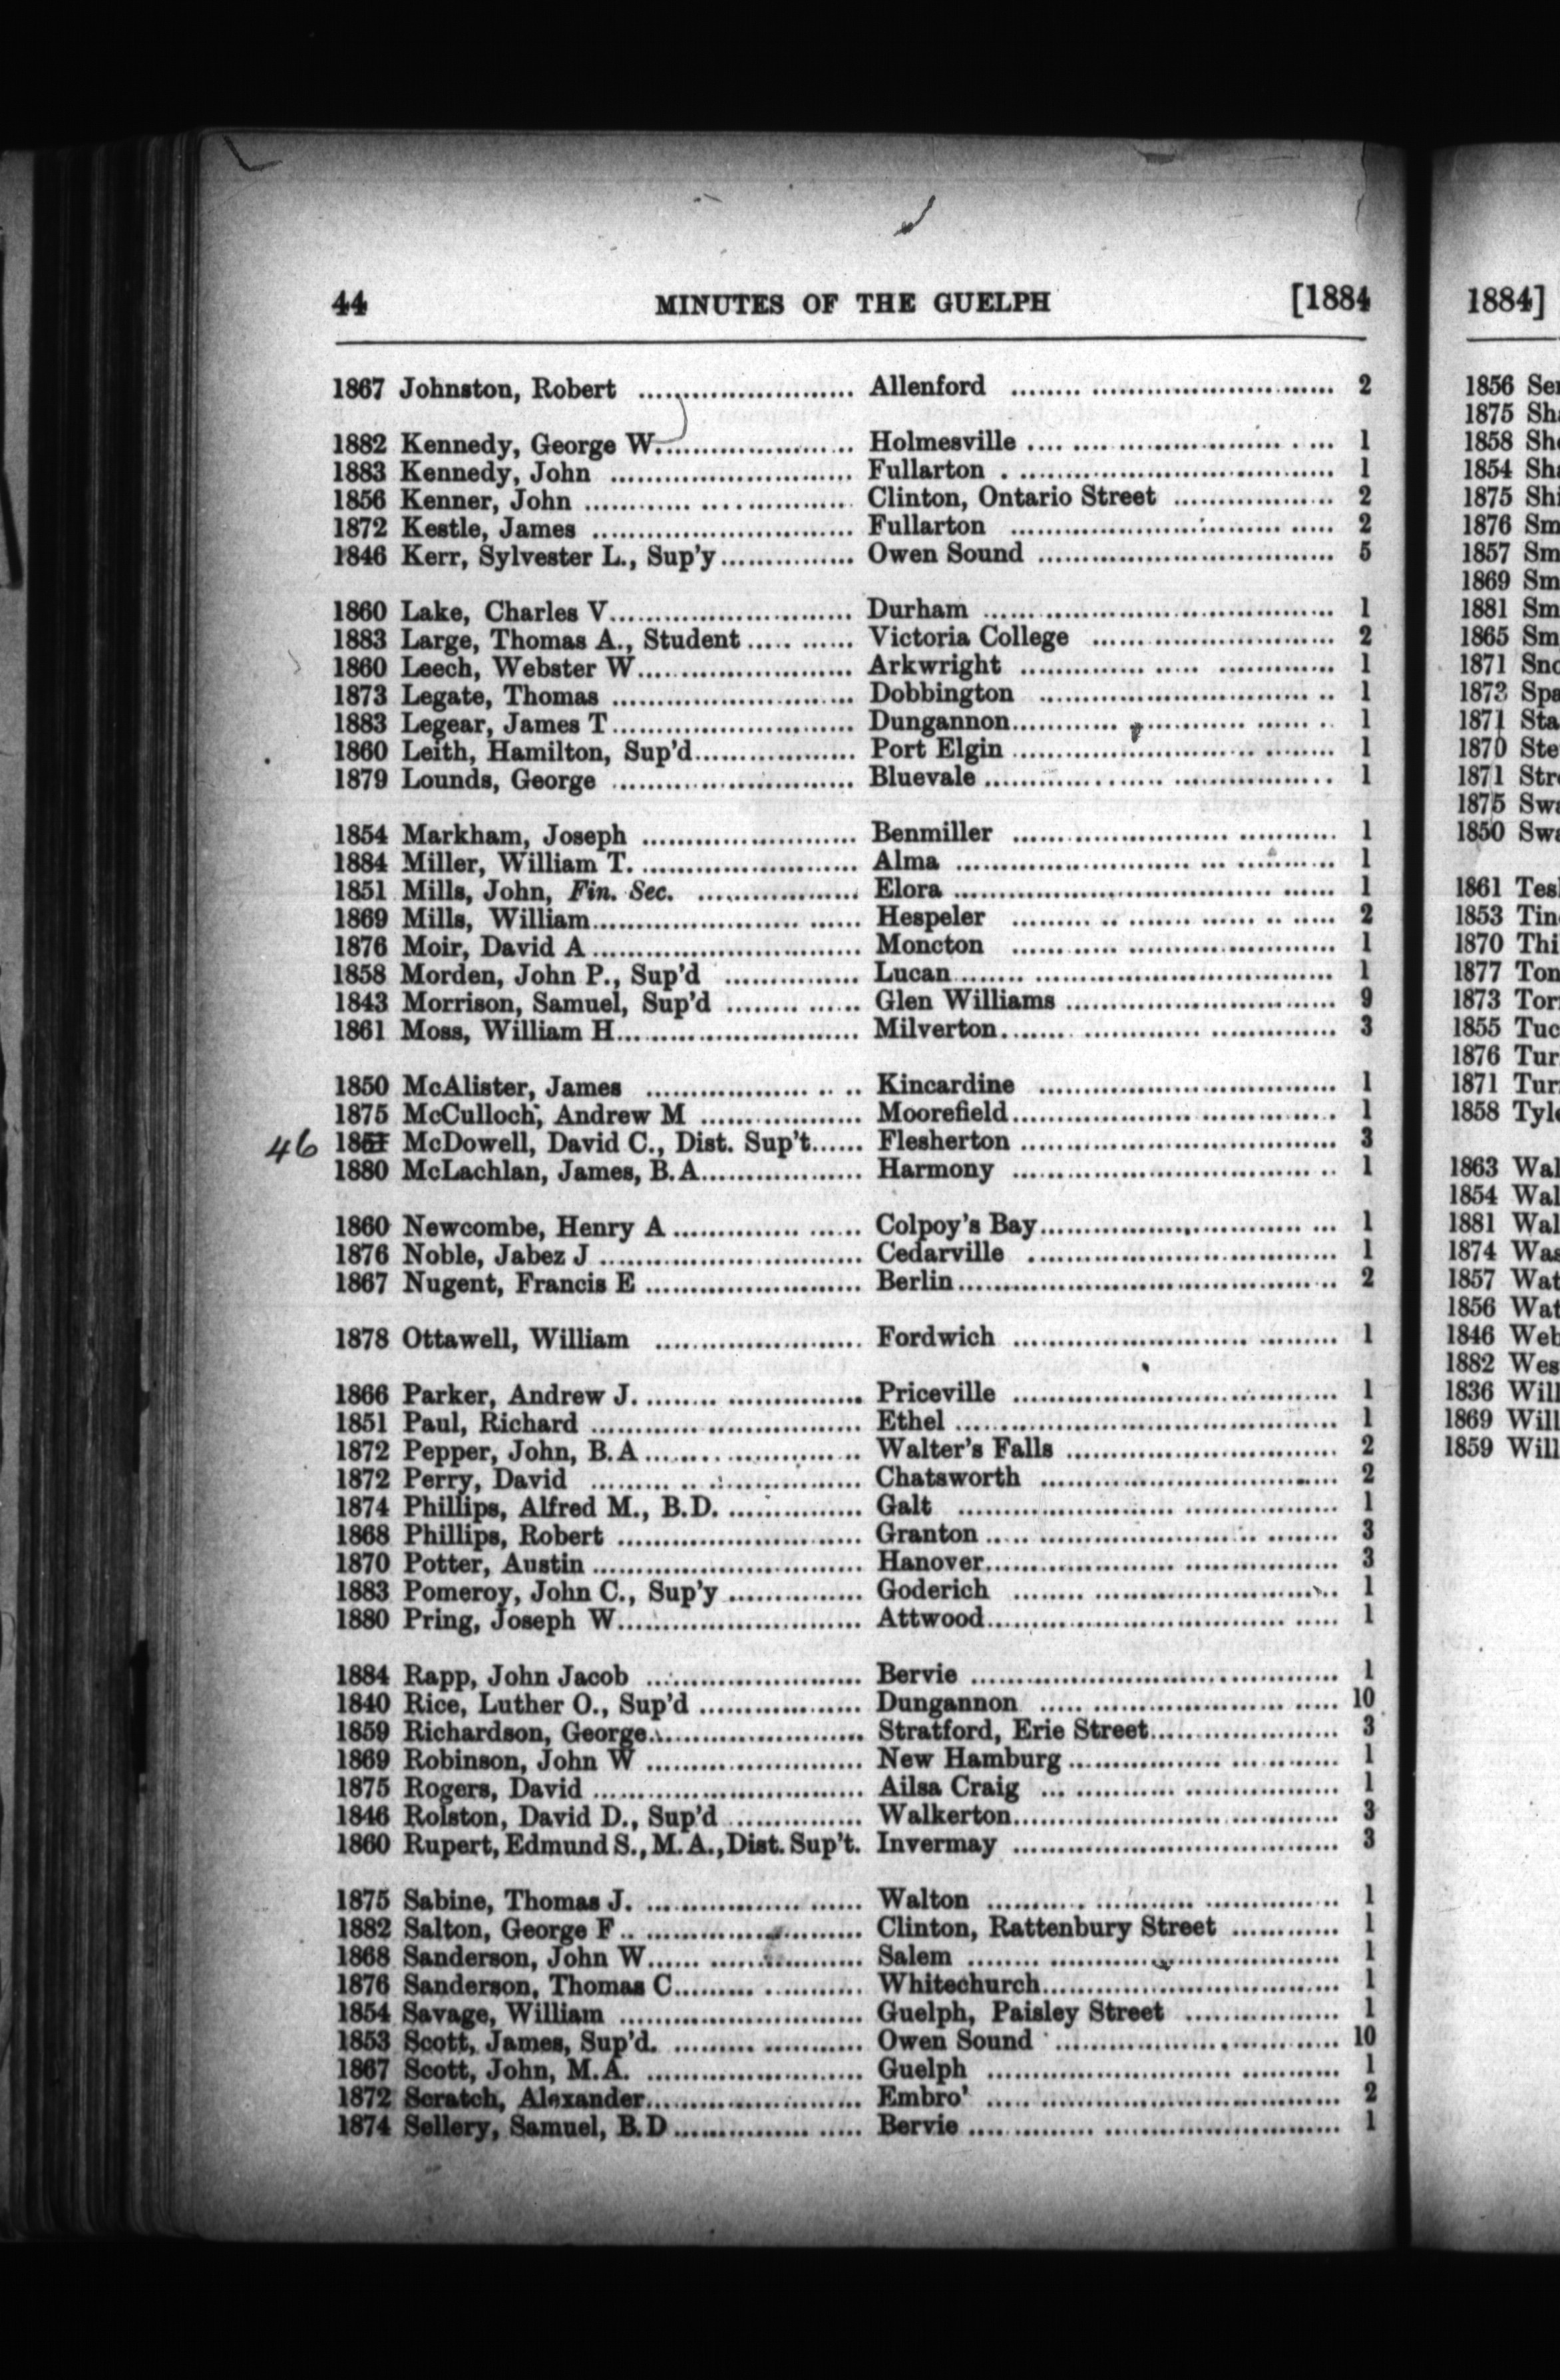 44 MINUTES OF THE GUELPH [1884
1867 Johnston, Robert ........ Allenford ........ 2
1882 Kennedy, George W. ........ Holmesville ........ 1
1883 Kennedy, John ........ Fullarton ........ 1
1856 Kenner, John ........ Clinton, Ontario Street ........ 2
1872 Kestle, James ........ Fullarton ........ 2
1846 Kerr, Sylvester L., Sup'y ........ Owen Sound ........ 5
1860 Lake, Charles V. ........ Durham ........ 1
1883 Large, Thomas A., Student ........ Victoria College ........ 2
1860 Leech, Webster W. ........ Arkwright ........ 1
1873 Legate, Thomas ........ Dobbington ........ 1
1883 Legear, James T. ........ Dungannon ........ 1
1860 Leith, Hamilton, Sup'd ........ Port Elgin ........ 1
1879 Lounds, George ........ Bluevale ........ 1
1854 Markham, Joseph ........ Benmiller ........ 1
1884 Miller, William T. ........ Alma ........ 1
1851 Mills, John, Fin. Sec. ........ Elora ........ 1
1869 Mills, William ........ Hespeler ........ 2
1876 Moir, David A ........ Moncton ........ 1
1858 Morden, John P., Sup'd ........ Lucan ........ 1
1843 Morrison, Samuel, Sup'd ........ Glen Williams ........ 9
1861 Moss, William H. ........ Milverton ........ 3
1850 McAlister, James ........ Kincardine ........ 1
1875 McCulloch, Andrew M ........ Moorefield ........ 1
46 1851 McDowell, David C., Dist. Sup't ........ Flesherton ........ 3
1880 McLachlan, James, B.A. ........ Harmony ........ 1
1860 Newcombe, Henry A ........ Colpoy's Bay ........ 1
1876 Noble, Jabez J ........ Cedarville ........ 1
1867 Nugent, Francis E ........ Berlin ........ 2
1878 Ottawell, William ........ Fordwich ........ 1
1866 Parker, Andrew J. ........ Priceville ........ 1
1851 Paul, Richard ........ Ethel ........ 1
1872 Pepper, John, B.A. ........ Walter's Falls ........ 2
1872 Perry, David ........ Chatsworth ........ 2
1874 Phillips, Alfred M., B.D. ........ Galt ........ 1
1868 Phillips, Robert ........ Granton ........ 3
1870 Potter, Austin ........ Hanover ........ 3
1883 Pomeroy, John C., Sup'y ........ Goderich ........ 1
1880 Pring, Joseph W. ........ Attwood ........ 1
1884 Rapp, John Jacob ........ Bervie ........ 1
1840 Rice, Luther O., Sup'd ........ Dungannon ........ 10
1859 Richardson, George ........ Stratford, Erie Street ........ 3
1869 Robinson, John W ........ New Hamburg ........ 1
1875 Rogers, David ........ Ailsa Craig ........ 1
1846 Rolston, David D., Sup'd ........ Walkerton ........ 3
1860 Rupert, Edmund S., M.A., Dist. Sup't. Invermay ........ 3
1875 Sabine, Thomas J. ........ Walton ........ 1
1882 Salton, George F ........ Clinton, Rattenbury Street ........ 1
1868 Sanderson, John W. ........ Salem ........ 1
1876 Sanderson, Thomas C. ........ Whitechurch ........ 1
1854 Savage, William ........ Guelph, Paisley Street ........ 1
1853 Scott, James, Sup'd. ........ Owen Sound ........ 10
1867 Scott, John, M.A. ........ Guelph ........ 1
1872 Scratch, Alexander ........ Embro' ........ 2
1874 Sellery, Samuel, B.D ........ Bervie ........ 1
1884]
1856 Ser
1875 Sha
1858 She
1854 Sha
1875 Shi
1876 Sm
1857 Sm
1869 Sm
1881 Sm
1865 Sm
1871 Sno
1873 Spa
1871 Sta
1870 Ste
1871 Stre
1875 Swa
1850 Swa
1861 Tes
1853 Tin
1870 Thi
1877 Ton
1873 Tor
1855 Tuc
1876 Tur
1871 Tur
1858 Tyle
1863 Wal
1854 Wal
1881 Wal
1874 Was
1857 Wat
1856 Wat
1846 Web
1882 Wes
1836 Will
1869 Will
1859 Will